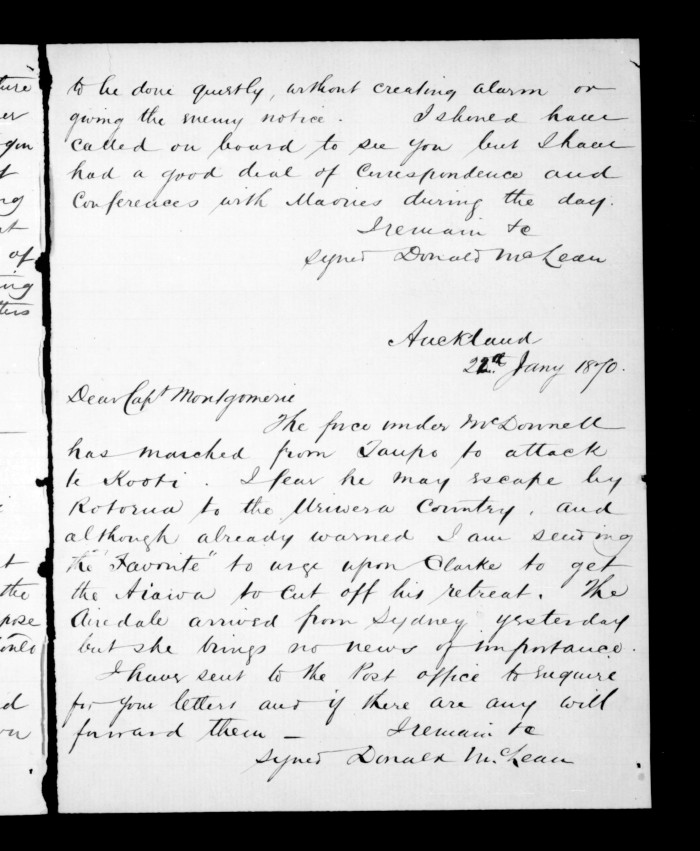 to be done quietly, without creating alarm or
giving the enemy notice. I should have
called on board to see you but I have
had a good deal of correspondence and
Conferences with Maories during the day.
I remain &c
signed Donald McLean
Auckland
22nd Jany 1870.
Dear Capt Montgomerie
The force under McDonnell
has marched from Taupo to attack
te Kooti. I fear he may escape by
Rotorua to the Uriwera Country, and
although already warned I am sending
the "Favorite" to urge upon Clarke to get
the Aiawa to cut off his retreat. The
Airedale arrived from Sydney yesterday
but she brings no news of importance.
I have sent to the Post office to enquire
for your letters and if there are any will
forward them —
I remain &c
signed Donald McLean
ture
er
you
ng
of
ing
ters
the
pose